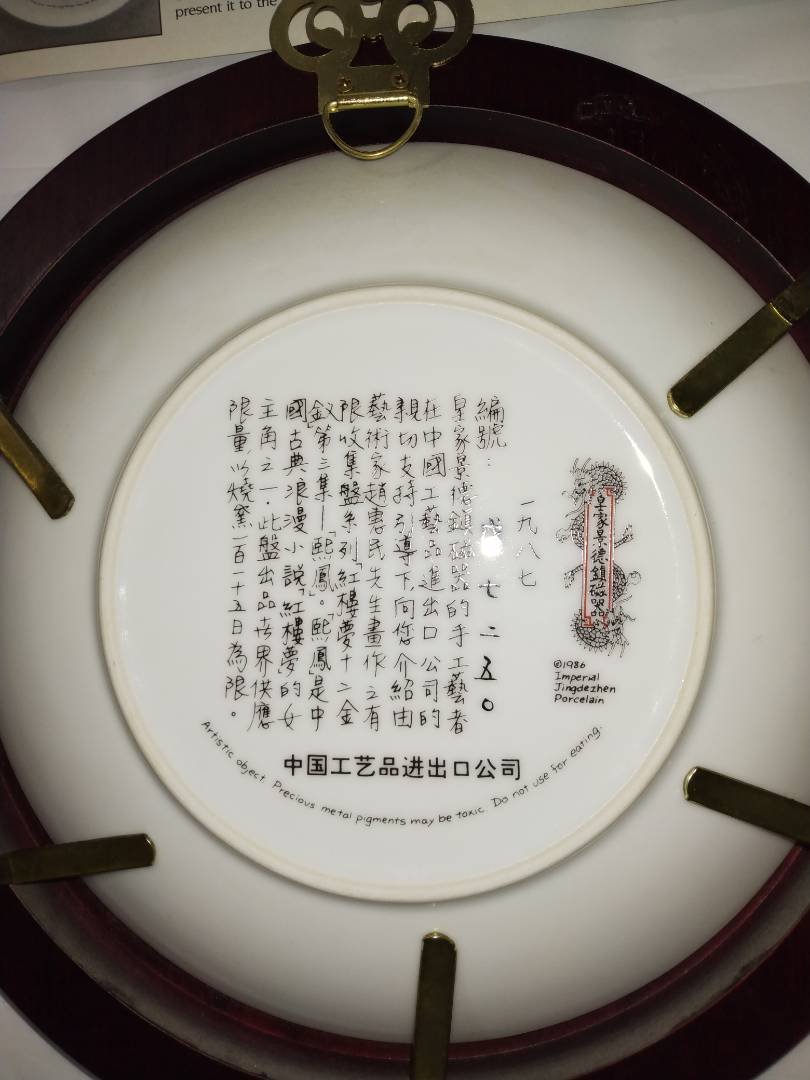 present it to the
皇家景德鎮磁器
©1986
Imperial
Jingdezhen
Porcelain
一九八七
編號：
七二五〇
皇家景德鎮磁器的手工藝者
在中國工藝品進出口公司的
親切支持引導下,向您介紹由
藝術家趙惠民先生畫作之有
限收集盤系列「紅樓夢十二金
釵」第三集—「熙鳳」。「熙鳳」是中
國古典浪漫小說「紅樓夢」的女
主角之一.此盤出品世界供應
限量,以燒窯一百一十五日為限。
中国工艺品进出口公司
Artistic object. Precious metal pigments may be toxic. Do not use for eating.